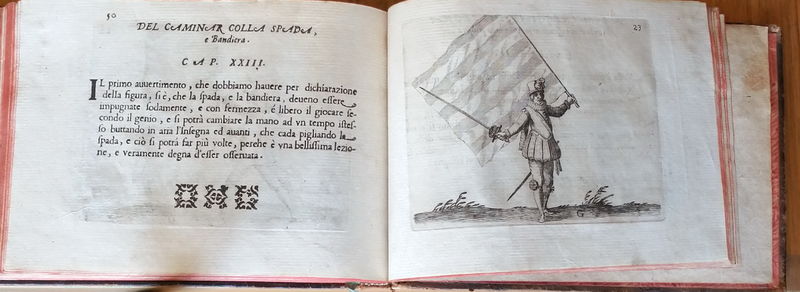 50
DEL CAMINAR COLLA SPADA,
e Bandiera.
CAP. XXIII.
IL primo auuertimento, che dobbiamo hauere per dichiarazione
della figura, si è, che la spada, e la bandiera, deueno essere
impugnate sodamente, e con fermezza, é libero il giocare se-
condo il genio, e si potrà cambiare la mano ad vn tempo istes-
so buttando in aria l'Insegna ed auanti, che cada pigliando la
spada, e ciò si potrà far più volte, perche è vna bellissima lezio-
ne, e veramente degna d'esser osseruata.
23